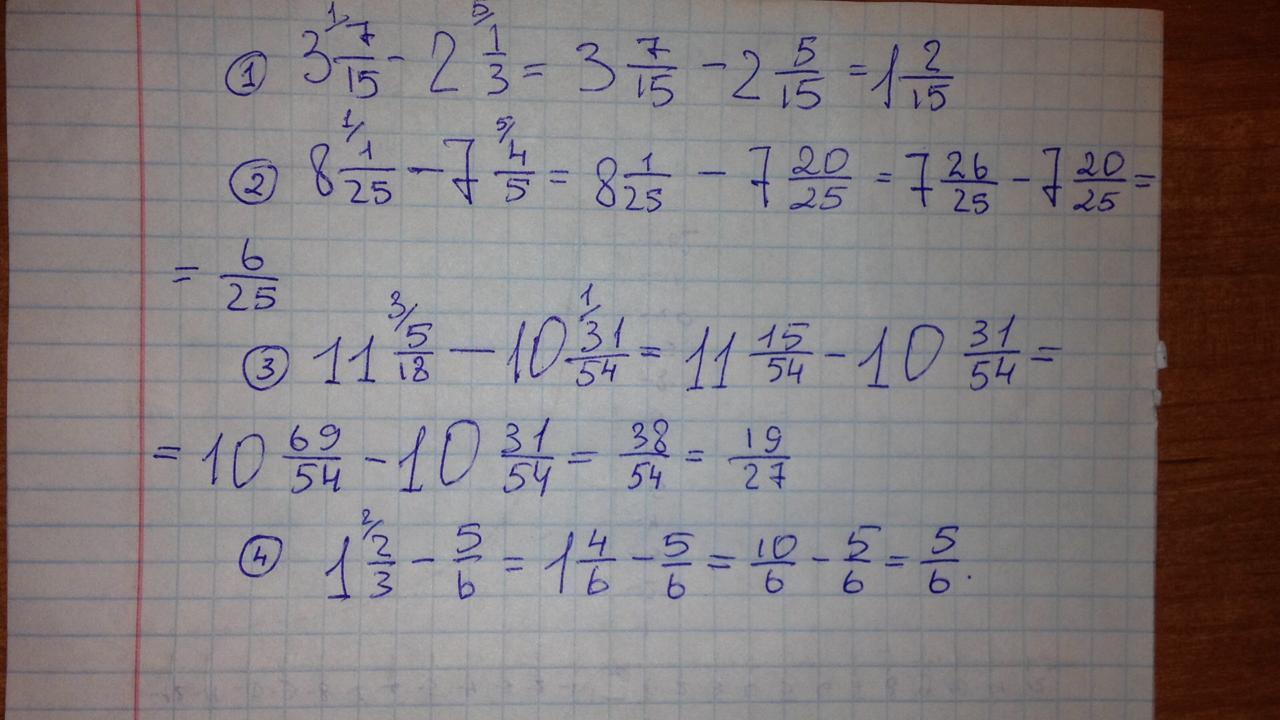 ① 3 ¹⁄ 7/15 - 2 ⁵⁄ 1/3 = 3 7/15 - 2 5/15 = 1 2/15
② 8 ¹⁄ 1/25 - 7 ⁵⁄ 4/5 = 8 1/25 - 7 20/25 = 7 26/25 - 7 20/25 =
= 6/25
③ 11 ³⁄ 5/18 - 10 ¹⁄ 31/54 = 11 15/54 - 10 31/54 =
= 10 69/54 - 10 31/54 = 38/54 = 19/27
④ 1 ²⁄ 2/3 - 5/6 = 1 4/6 - 5/6 = 10/6 - 5/6 = 5/6.